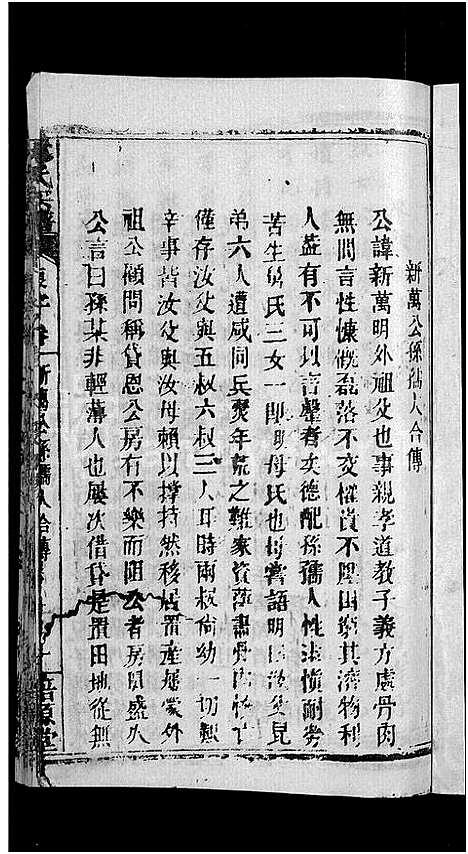 新萬公孫孺人合傳
公諱新萬明外祖父也事親孝道教子義方處骨肉
無間言性慷慨磊落不交權貴不壓困窮其濟物利
人蓋有不可以言罄者矣德配孫孺人性法慎耐勞
苦生舅氏三女一即明母氏也母嘗語明曰汝父見
弟六人遭咸同兵燹年荒之難家資蕩盡骨肉
僅存汝父與五叔六叔三人耳時兩叔尚幼一切艱
辛事皆汝父與汝母賴以撐持然移居置產屢蒙外
祖公傾問稱貸恩公房有不樂而阻公者房明盛久
公言曰孫某非輕薄人也屢次借貸是置田地從無
氏宗譜
卷 新萬公孫孺人合傳